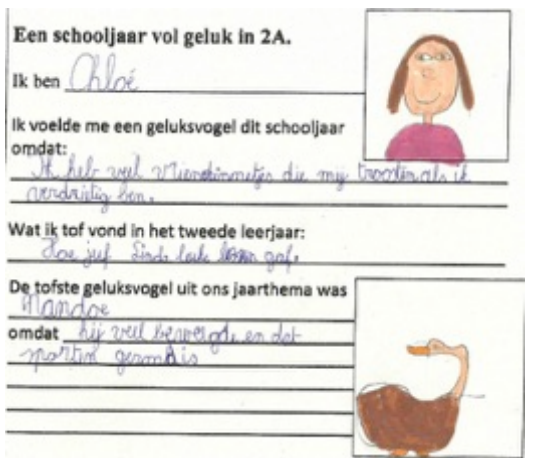 Een schooljaar vol geluk in 2A.
Ik ben Chloé
Ik voelde me een geluksvogel dit schooljaar
omdat:
Ik heb veel vriendinnetjes die mij troosten als ik
verdrietig ben.
Wat ik tof vond in het tweede leerjaar:
Hoe juf Linde leuke gaf.
De tofste geluksvogel uit ons jaarthema was
Mandoe
omdat hij veel beweegde en dat
is